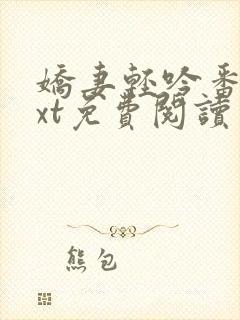 嬌妻輕吟番
xt免費閱讀
熊包